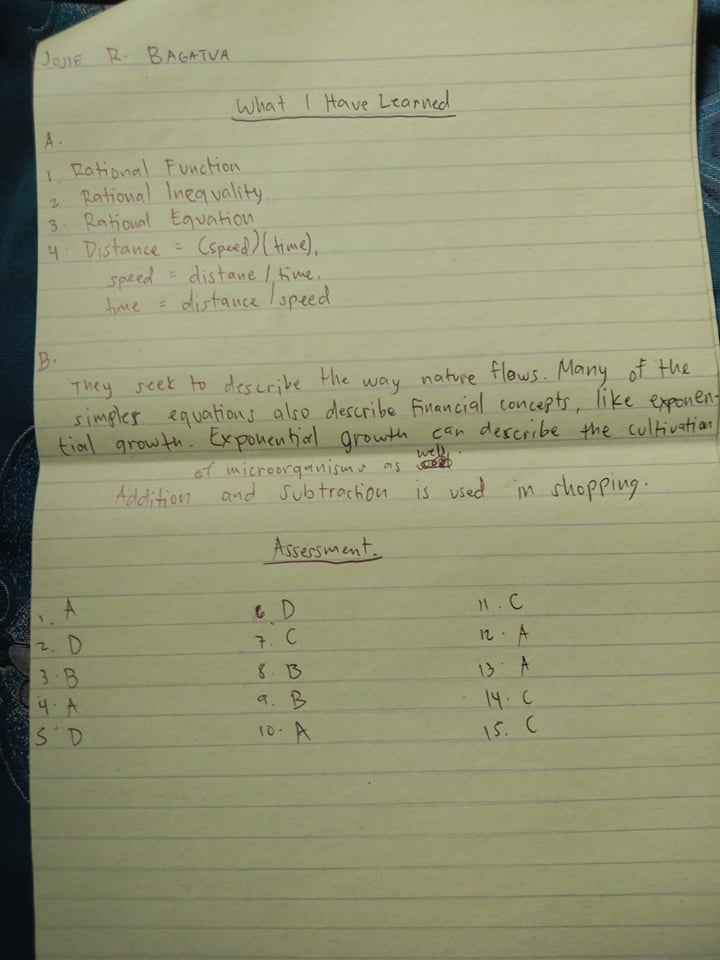 JOJIE R. BAGATUA
What I Have Learned
A.
1. Rational Function
2. Rational Inequality
3. Rational Equation
4. Distance = (speed)(time),
speed = distane / time.
time = distance / speed
B.
They seek to describe the way nature flows. Many of the
simples equations also describe financial concepts, like exponen-
tial growth. Exponential growth can describe the cultivation
of microorganisms as well
Addition and subtraction is used in shopping.
Assessment.
1. A 6. D 11. C
2. D 7. C 12. A
3. B 8. B 13. A
4. A 9. B 14. C
5. D 10. A 15. C